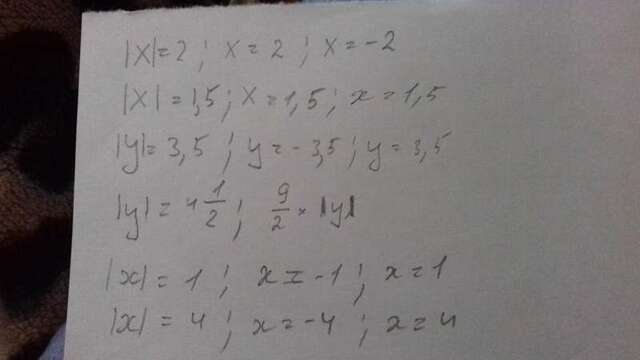 |x|=2; x=2; x=-2
|x|=1,5; x=1,5; x=1,5
|y|=3,5; y=-3,5; y=3,5
|y|=4 1/2; 9/2 × |y|
|x|=1; x=-1; x=1
|x|=4; x=-4; x=4